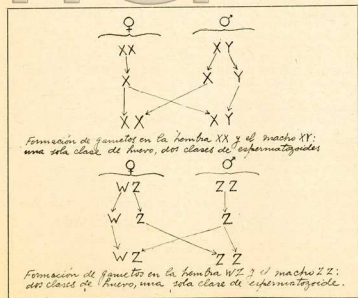 ♀ ♂
XX XY
X X Y
XX XY
Formación de gametos en la hembra XX y el macho XY:
una sola clase de huevo, dos clases de espermatozoides
♀ ♂
WZ ZZ
W Z Z
WZ ZZ
Formación de gametos en la hembra WZ y el macho ZZ:
dos clases de huevo, una sola clase de espermatozoide.